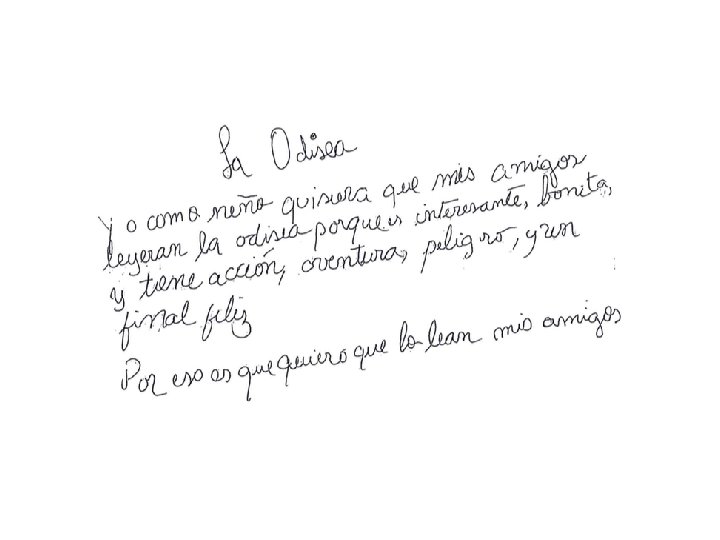 La Odisea
Yo como neño quisiera que mis amigos
leyeran la odisea porque es interesante, bonita,
y tiene acción, aventura, peligro, y un
final feliz
Por eso es que quiero que lo lean mis amigos